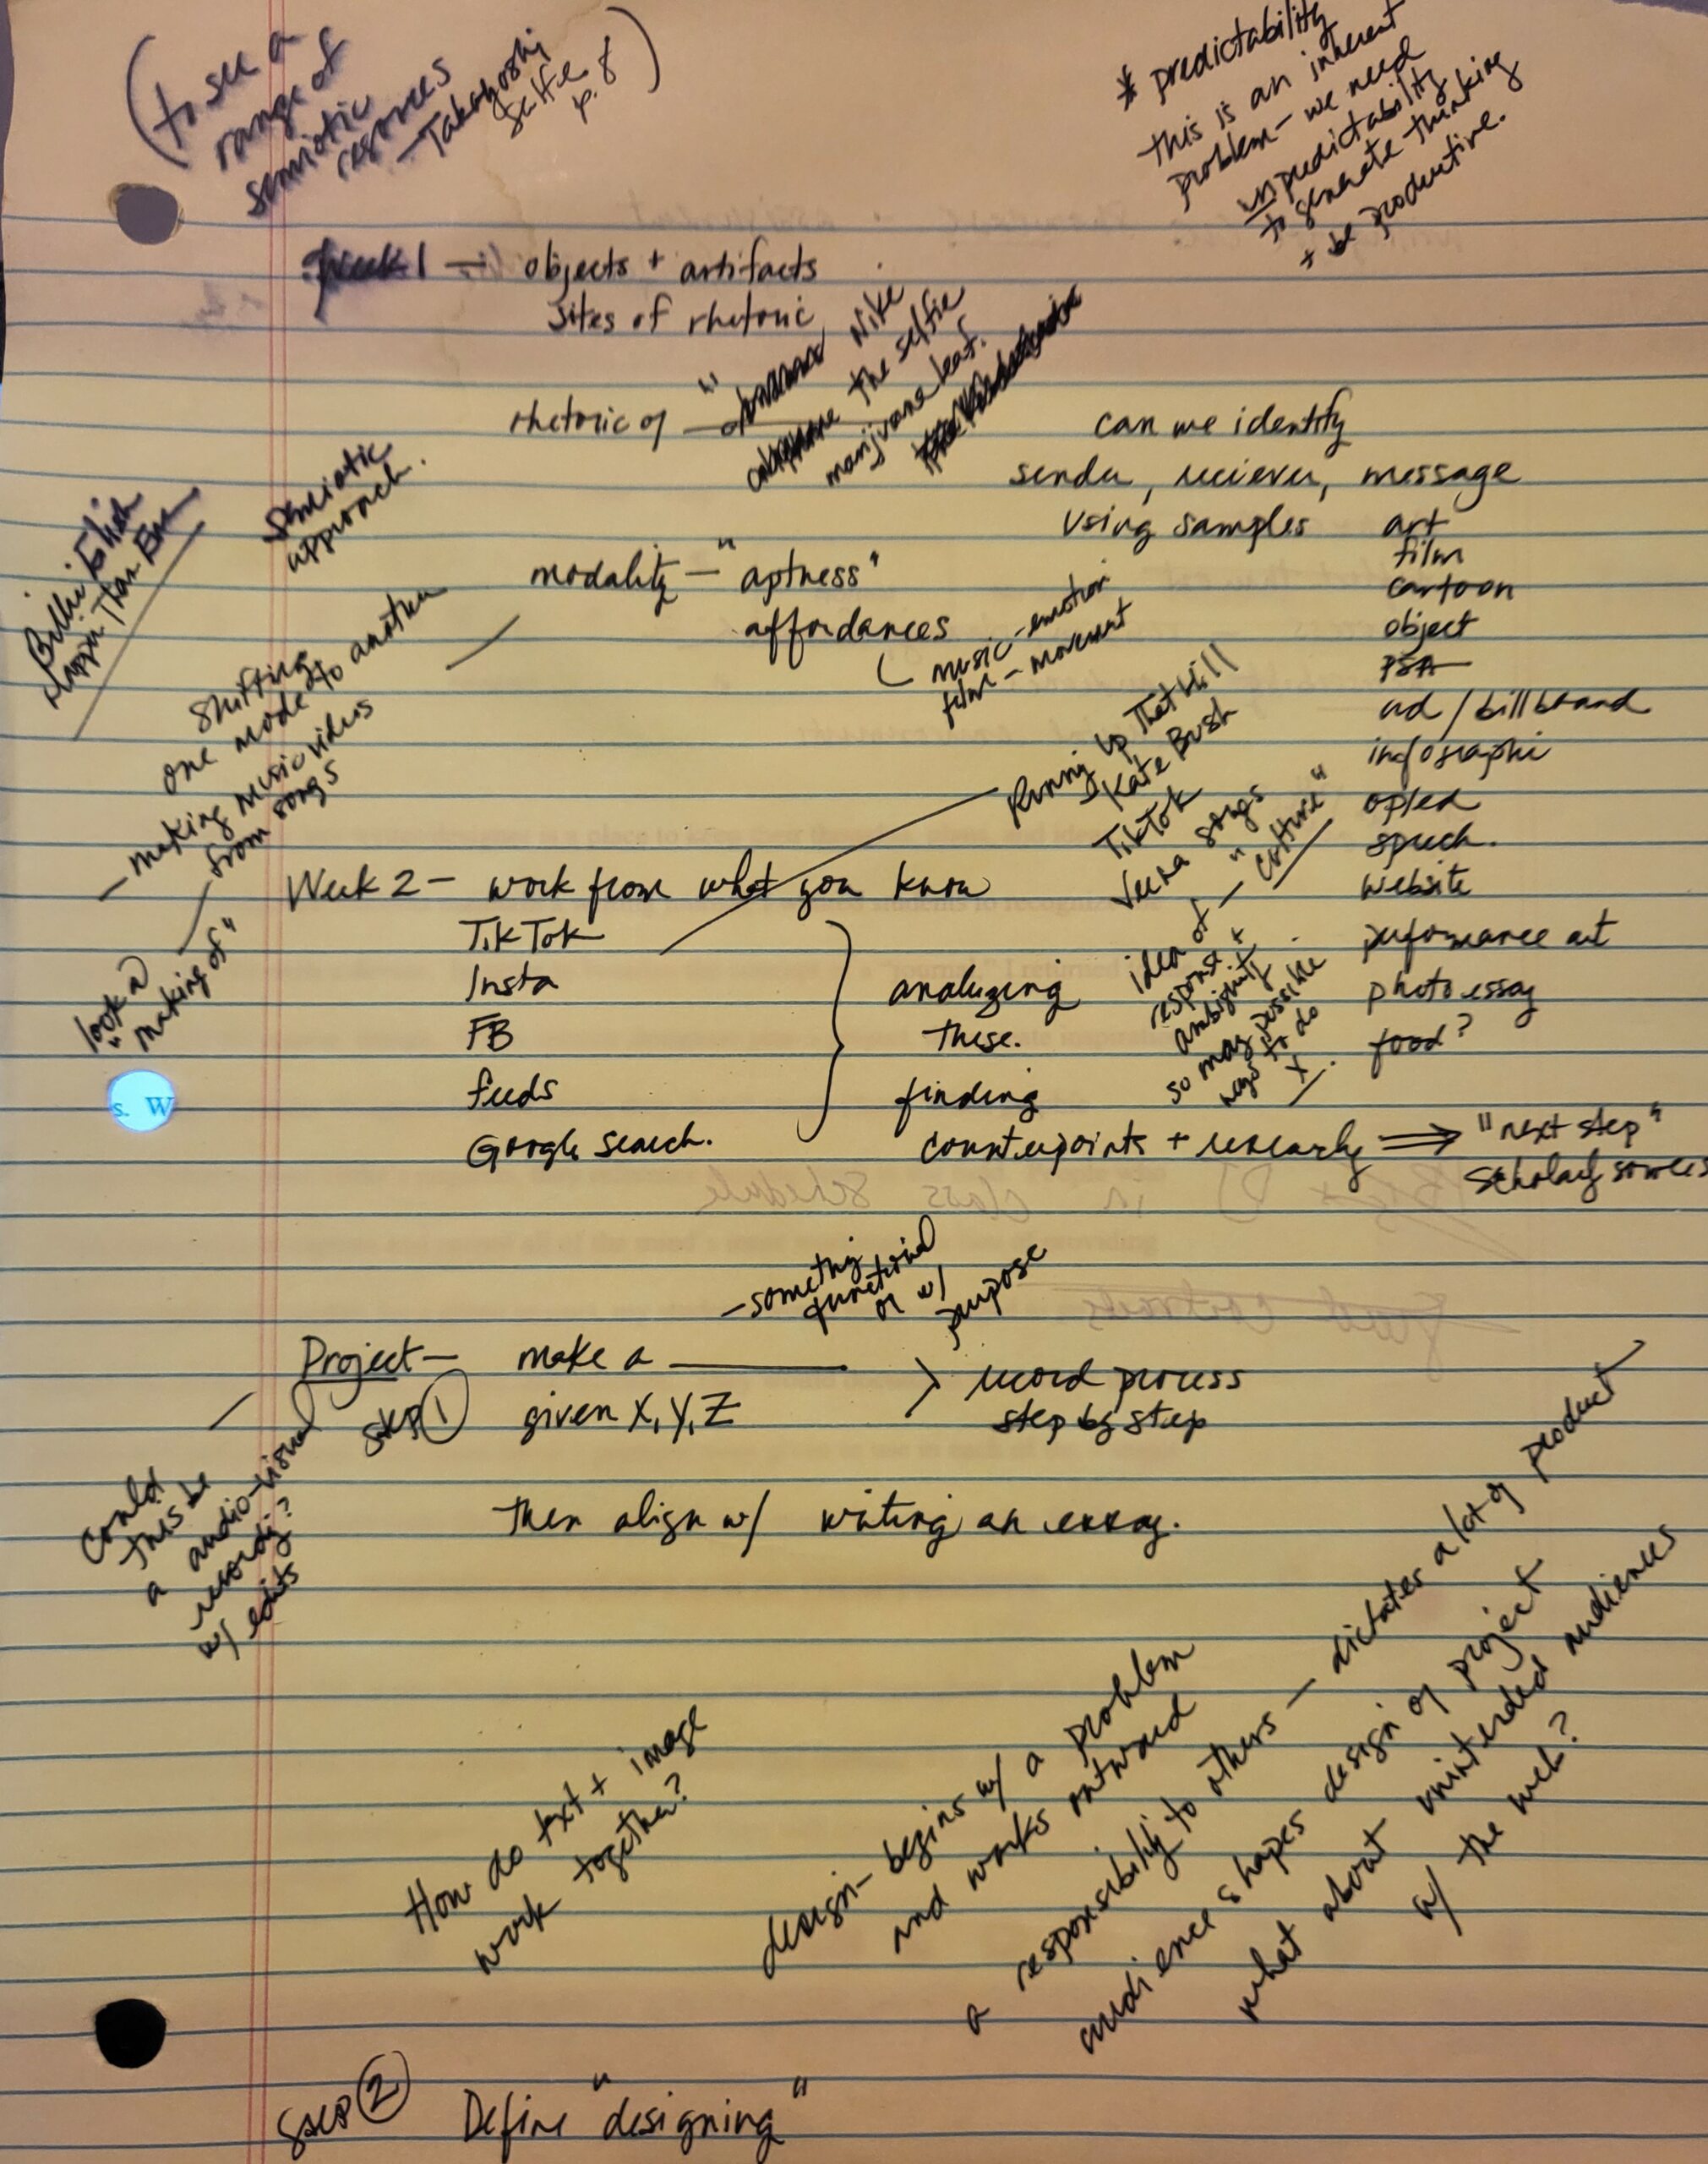 (to see a
range of
semiotic
resources
- Takayoshi
Selfe
p. 8)
* predictability
this is an inherent
problem - we need
unpredictability
to generate thinking
+ be productive.
Week 1 - objects + artifacts
sites of rhetoric
rhetoric of "
Nike
the selfie
marijuana leaf.
can we identify
sender, reciever, message
using samples
art
film
cartoon
object
PSA
ad / billboard
infographic
op/ed
speech.
website
performance art
photo essay
food?
semiotic
approach.
Billie Eilish
Happier Than Ever
modality - "aptness"
affordances
music - emotion
film - movement
shifting
one mode to another
- making music videos
from songs
look @
"making of"
Running Up That Hill
Kate Bush
TikTok
Veena songs
idea of - "culture"
response +
ambiguity.
so many possible
ways to do
X.
Week 2 - work from what you know
TikTok
Insta
FB
feeds
Google search.
analyzing
these.
finding
counterpoints + research ⟹ "next step"
scholarly sources
- something
functional
or w/
purpose
Project - make a ______
step ① given X, Y, Z
> record process
step by step
could
this be
a audio-visual
recording?
w/ edits
then align w/ writing an essay.
How do text + image
work together?
design - begins w/ a problem
and works outward
a responsibility to others - dictates a lot of product
audience shapes design of project
what about unintended audiences
w/ the web?
step ② Define "designing"
s. W